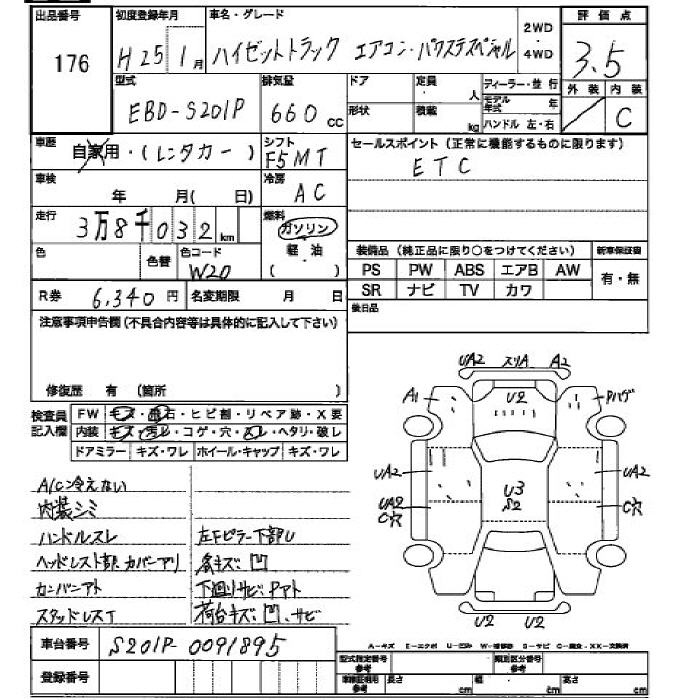 出品番号 176
初度登録年月 H25年1月
車名・グレード ハイゼットトラック エアコン・パワステスペシャル
2WD・4WD
評価点 3.5
外装 内装 C
型式 EBD-S201P
排気量 660 cc
ドア 形状
定員 人
積載 kg
ディーラー・並行
モデル年式 年
ハンドル 左・右
車歴 自家用・(レンタカー)
シフト F5MT
車検 年 月(日)
冷房 AC
走行 3万8千032km
燃料 ガソリン 軽油 ( )
色 色替 色コード W20
セールスポイント(正常に機能するものに限ります)
ETC
装備品(純正品に限り○をつけてください)
新車保証書 有・無
PS PW ABS エアB AW
SR ナビ TV カワ
後日品
R券 6,340円 名変期限 月 日
注意事項申告欄(不具合内容等は具体的に記入して下さい)
修復歴 有 (箇所 )
検査員記入欄
FW キズ・飛石・ヒビ割・リペア跡・X要
内装 キズ・汚レ・コゲ・穴・スレ・ヘタリ・破レ
ドアミラー キズ・ワレ ホイール・キャップ キズ・ワレ
A/C冷えない
内装シミ
ハンドルスレ 左Fピラー下部U
ヘッドレスト部カバーアリ 各キズ・凹
カンバンアト 下廻りサビ・Pアト
スタッドレスT 荷台キズ・凹・サビ
UA2 スリA A2
A1 U2 Pハゲ
UA2 UA2
UA2 C穴 U3 S2 C穴
U2 U2
車台番号 S201P-0091895
登録番号
A-キズ E-エクボ U-凹ミ W-補修跡 S-サビ C-腐食 ・XX-交換済
型式指定番号 参考
類別区分番号 参考
車検証明用 参考 長さ cm 幅 cm 高さ cm